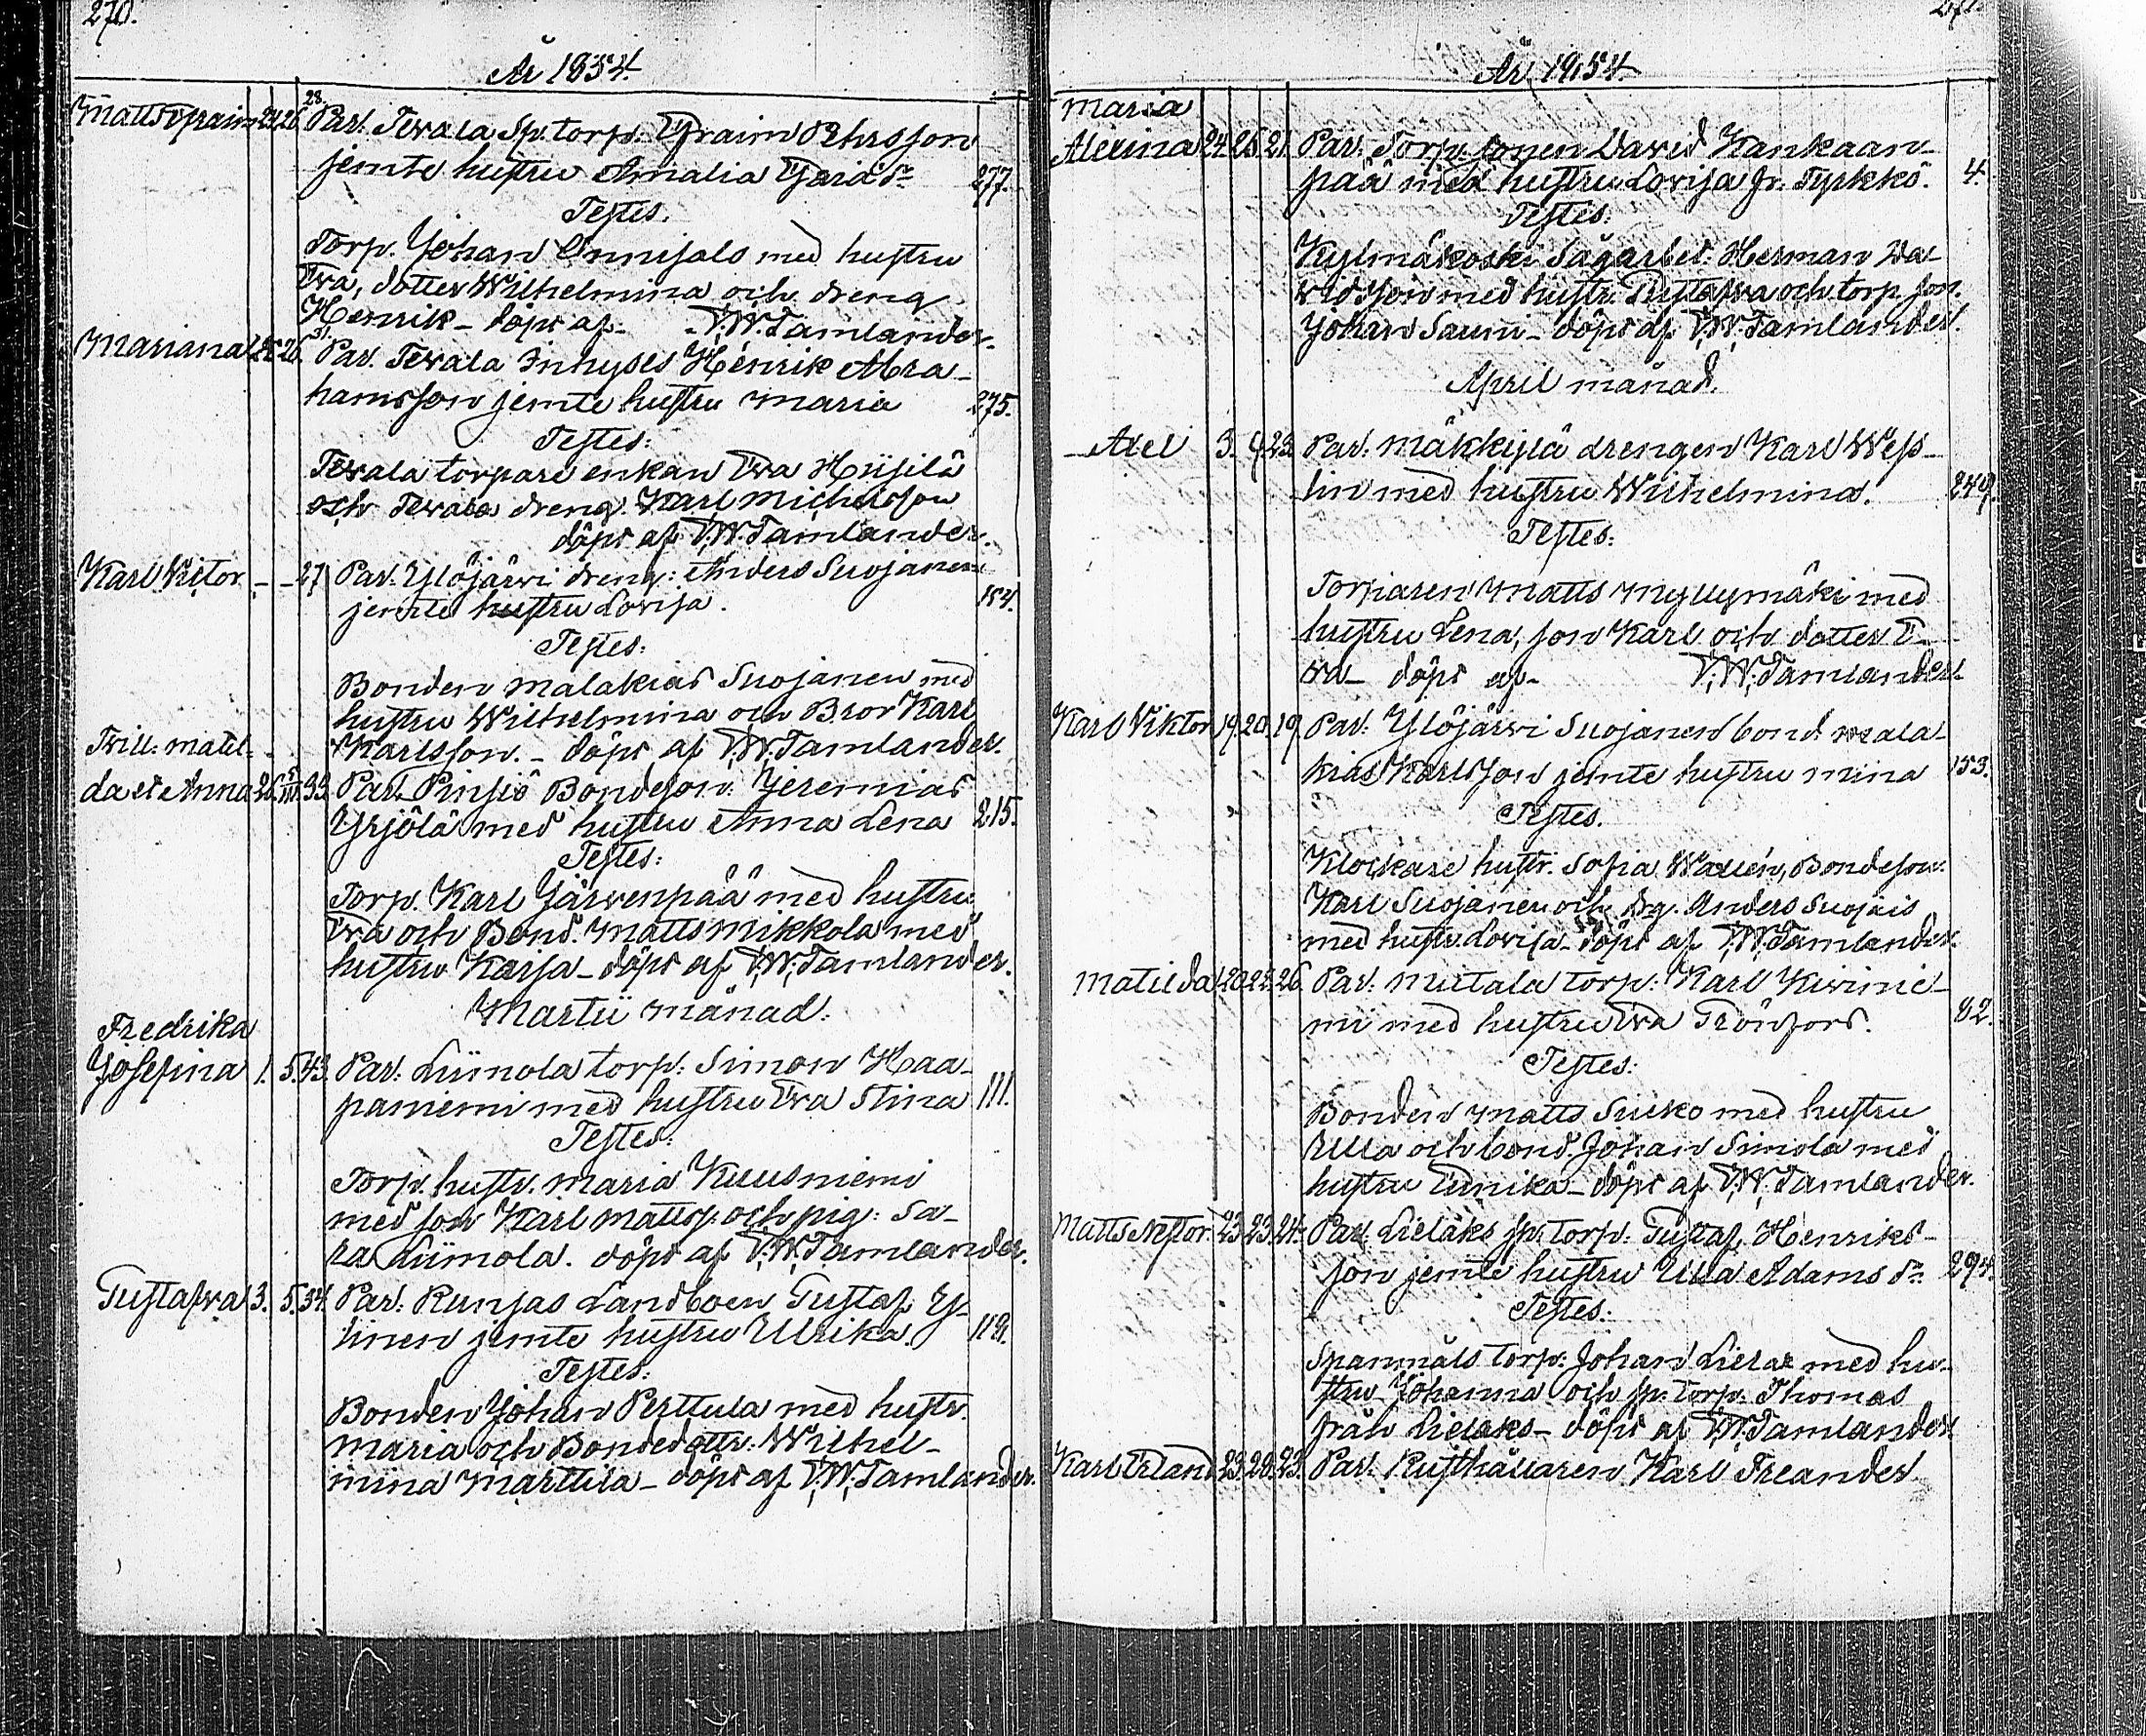 270.
År 1854.
Matts Efraim 24 26 28. Par. Tevala Sp. torp. Efraim Pehrsson
jemte hustru Amalia Esaias dr 277.
Testes.
Torp. Johan Onnisals med hustru
Eva, dotter Wilhelmina och dreng
Henrik - döpt af - T. W. Tamlander.
Mariana 25 26. 31. Par. Tevala Inhyses Henrik Abra-
hamsson jemte hustru Maria 275.
Testes:
Tevala torpare enkan Eva Hiisilä
och Tevala dreng Karl Michelsson
döpt af T. W. Tamlander.
Karl Victor - - 27 Par. Ylöjärvi dreng: Anders Suojanen
jemte hustru Lovisa. 154.
Testes:
Bonden Malakias Suojanen med
hustru Wilhelmina och Bror Karl
Karlsson. - döpt af T. W. Tamlander.
Trill: Matil-
da et Anna 26. 33. Par. Pinsiö Bondeson. Jeremias
Yrjölä med hustru Anna Lena 215.
Testes:
Torp. Karl Järvenpää med hustru
Eva och Bond. Matts Mikkola med
hustru Kaisa - döpt af T. W. Tamlander.
Martii månad.
Fredrika
Josefina 1. 5. 43. Par: Liimola torp: Simon Haa-
paniemi med hustru Eva Stina 111.
Testes:
Torp. hustr. Maria Kuusniemi
med son Karl Mattss. och pig: Sa-
ra Liimola. döpt af T. W. Tamlander.
Gustafva 3. 5. 34. Par: Runsas Landboen Gustaf Y-
linen jemte hustru Ulrika. 119.
Testes:
Bonden Johan Perttula med hustr.
Maria och Bondedottr: Wilhel-
mina Marttila - döpt af T. W. Tamlander.
271.
År 1854.
Maria
Alexina 24 26 21 Par. Torp. sonen David Kankaan-
pää med hustru Lovisa Jr. Tyrkkö. 4.
Testes:
Kylmäkoski Sågarbet. Herman Da-
vidsson med hustr. Gustafva och torp. son.
Johan Sauni - döpt af T. W. Tamlander.
April månad.
Axel 3. 9 23. Par. Mäkkylä drengen Karl Wess-
lin med hustru Wilhelmina. 249.
Testes:
Torparen Matts Myllymäki med
hustru Lena, son Karl och dotter E-
va - döpt af - T. W. Tamlander.
Karl Viktor 19. 20. 19. Par. Ylöjärvi Suojanen bond Mala-
kias Karlsson jemte hustru Mina 153.
Testes.
Klockare hustr. Sofia Wallén, Bondeson.
Karl Suojanen och Dg. Anders Suojais
med hustr. Lovisa - döpt af T. W. Tamlander.
Matilda 20 23. 26. Par. Mutala torp: Karl Kivinie-
mi med hustru Eva Grönfors. 82.
Testes:
Bonden Matts Suiko med hustru
Ulla och bond. Johan Simola med
hustru Eunika - döpt af T. W. Tamlander.
Matts Nestor. 23. 23. 24. Par: Lielaks sp. torp: Gustaf Henriks-
son jemte hustru Ulla Adams dr. 294.
Testes:
Spanmåls torp: Johan Lielax med hu-
stru Johanna och sp. torp. Thomas
från Lielaks - döpt af T. W. Tamlander.
Karl Erland 23. 28. 23. Par. Rusthållaren Karl Freander.